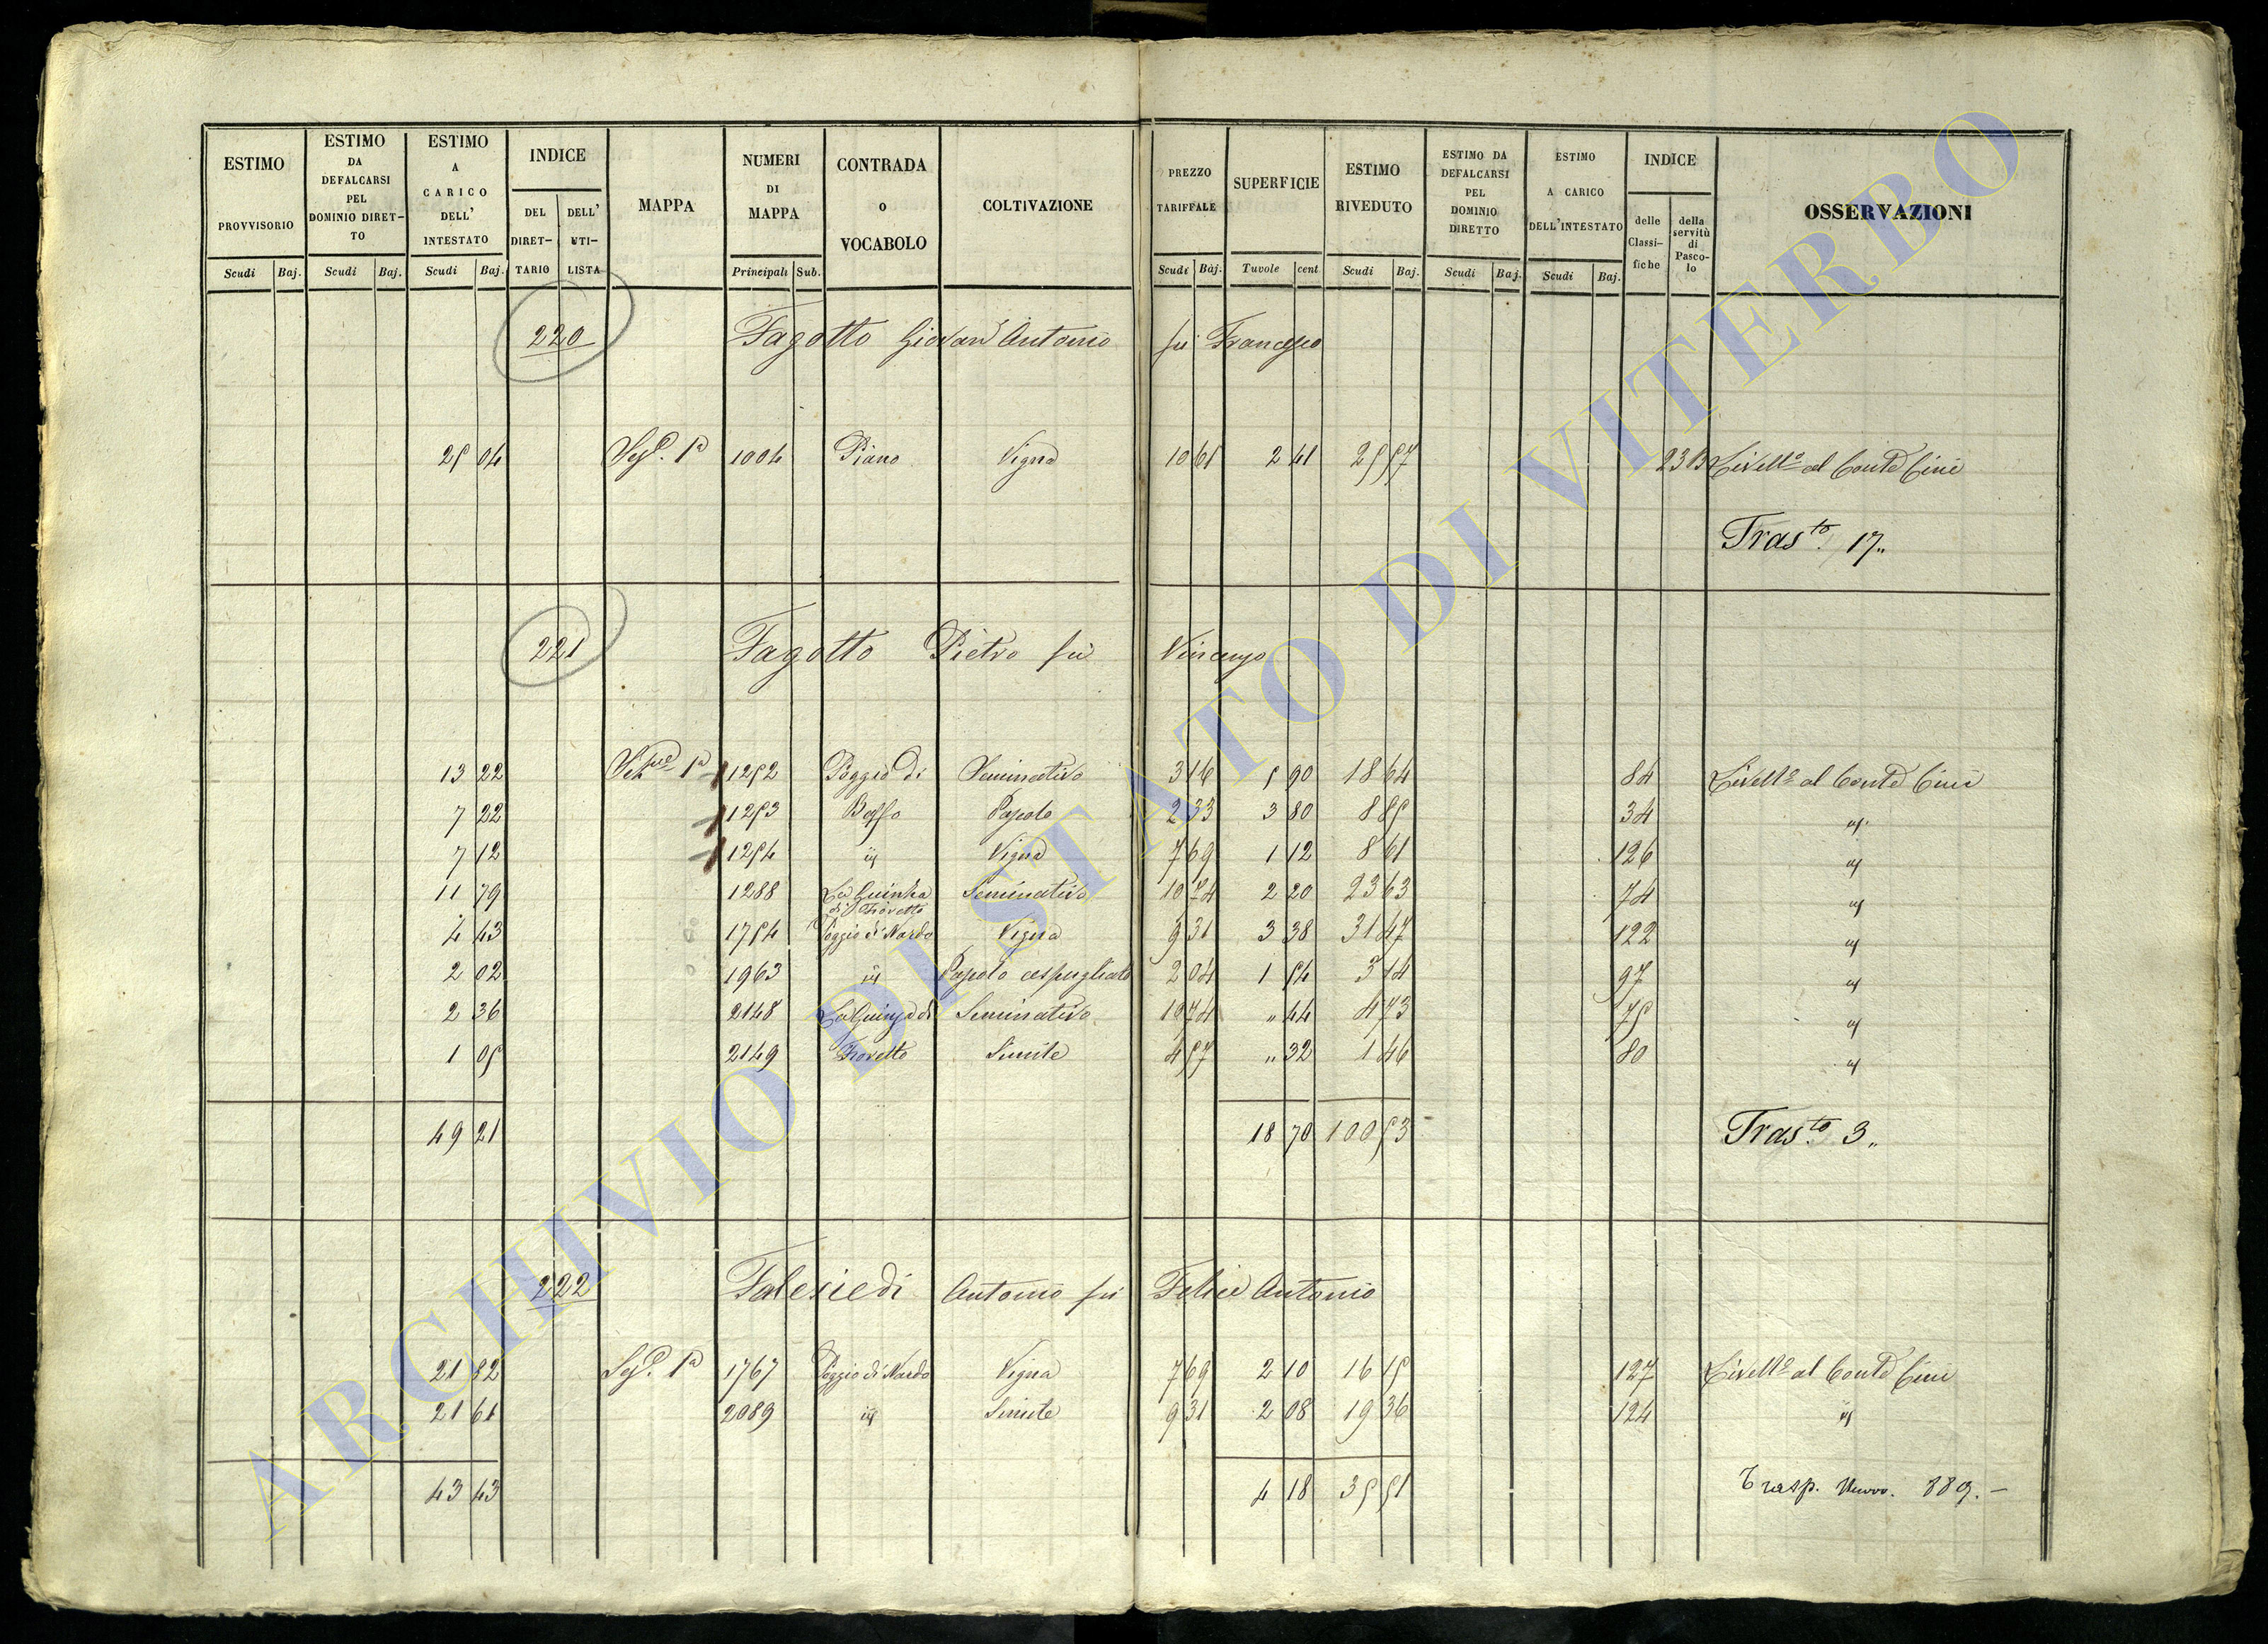 ESTIMO PROVVISORIO Scudi Baj.
ESTIMO DA DEFALCARSI PEL DOMINIO DIRET-TO Scudi Baj.
ESTIMO A CARICO DELL' INTESTATO Scudi Baj.
INDICE DEL DIRET-TARIO DELL' UTI-LISTA
MAPPA
NUMERI DI MAPPA Principali Sub.
CONTRADA o VOCABOLO
COLTIVAZIONE
PREZZO TARIFFALE Scudi Baj.
SUPERFICIE Tavole cent
ESTIMO RIVEDUTO Scudi Baj.
ESTIMO DA DEFALCARSI PEL DOMINIO DIRETTO Scudi Baj.
ESTIMO A CARICO DELL'INTESTATO Scudi Baj.
INDICE delle Classi-fiche della servitù di Pasco-lo
OSSERVAZIONI
220 Fagotto Giovan Antonio fù Francesco
25 04 Sez. 1a 1004 Piano Vigna 10 61 2 41 25 57 231 Livello al Conte Cini
Tras.to 17"
221 Fagotto Pietro fù Vincenzo
13 22 1a 1252 Poggio di Seminativo 3 16 5 90 18 64 84 Livello al Conte Cini
7 22 1253 Pascolo 2 33 3 80 8 85 34 "
7 12 1254 " Vigna 7 69 1 12 8 61 126 "
11 79 1288 La di Fioretto Seminativo 10 74 2 20 23 63 74 "
4 43 1754 Poggio di Nardo Vigna 9 31 3 38 31 47 122 "
2 02 1963 " Pascolo cespugliato 2 04 1 54 3 14 97 "
2 36 2148 La di Seminativo 10 74 " 44 4 73 75 "
1 05 2149 Fioretto Simile 4 57 " 32 1 46 80 "
49 21 18 70 100 53 Tras.to 3"
222 Falesiedi Antonio fù Felice Antonio
21 82 Sez. 1a 1767 Poggio di Nardo Vigna 7 69 2 10 16 15 127 Livello al Conte Cini
21 61 2089 " Simile 9 31 2 08 19 36 124 "
43 43 4 18 35 51 Trasp. Nuovo. 889.-
ARCHIVIO DI STATO DI VITERBO